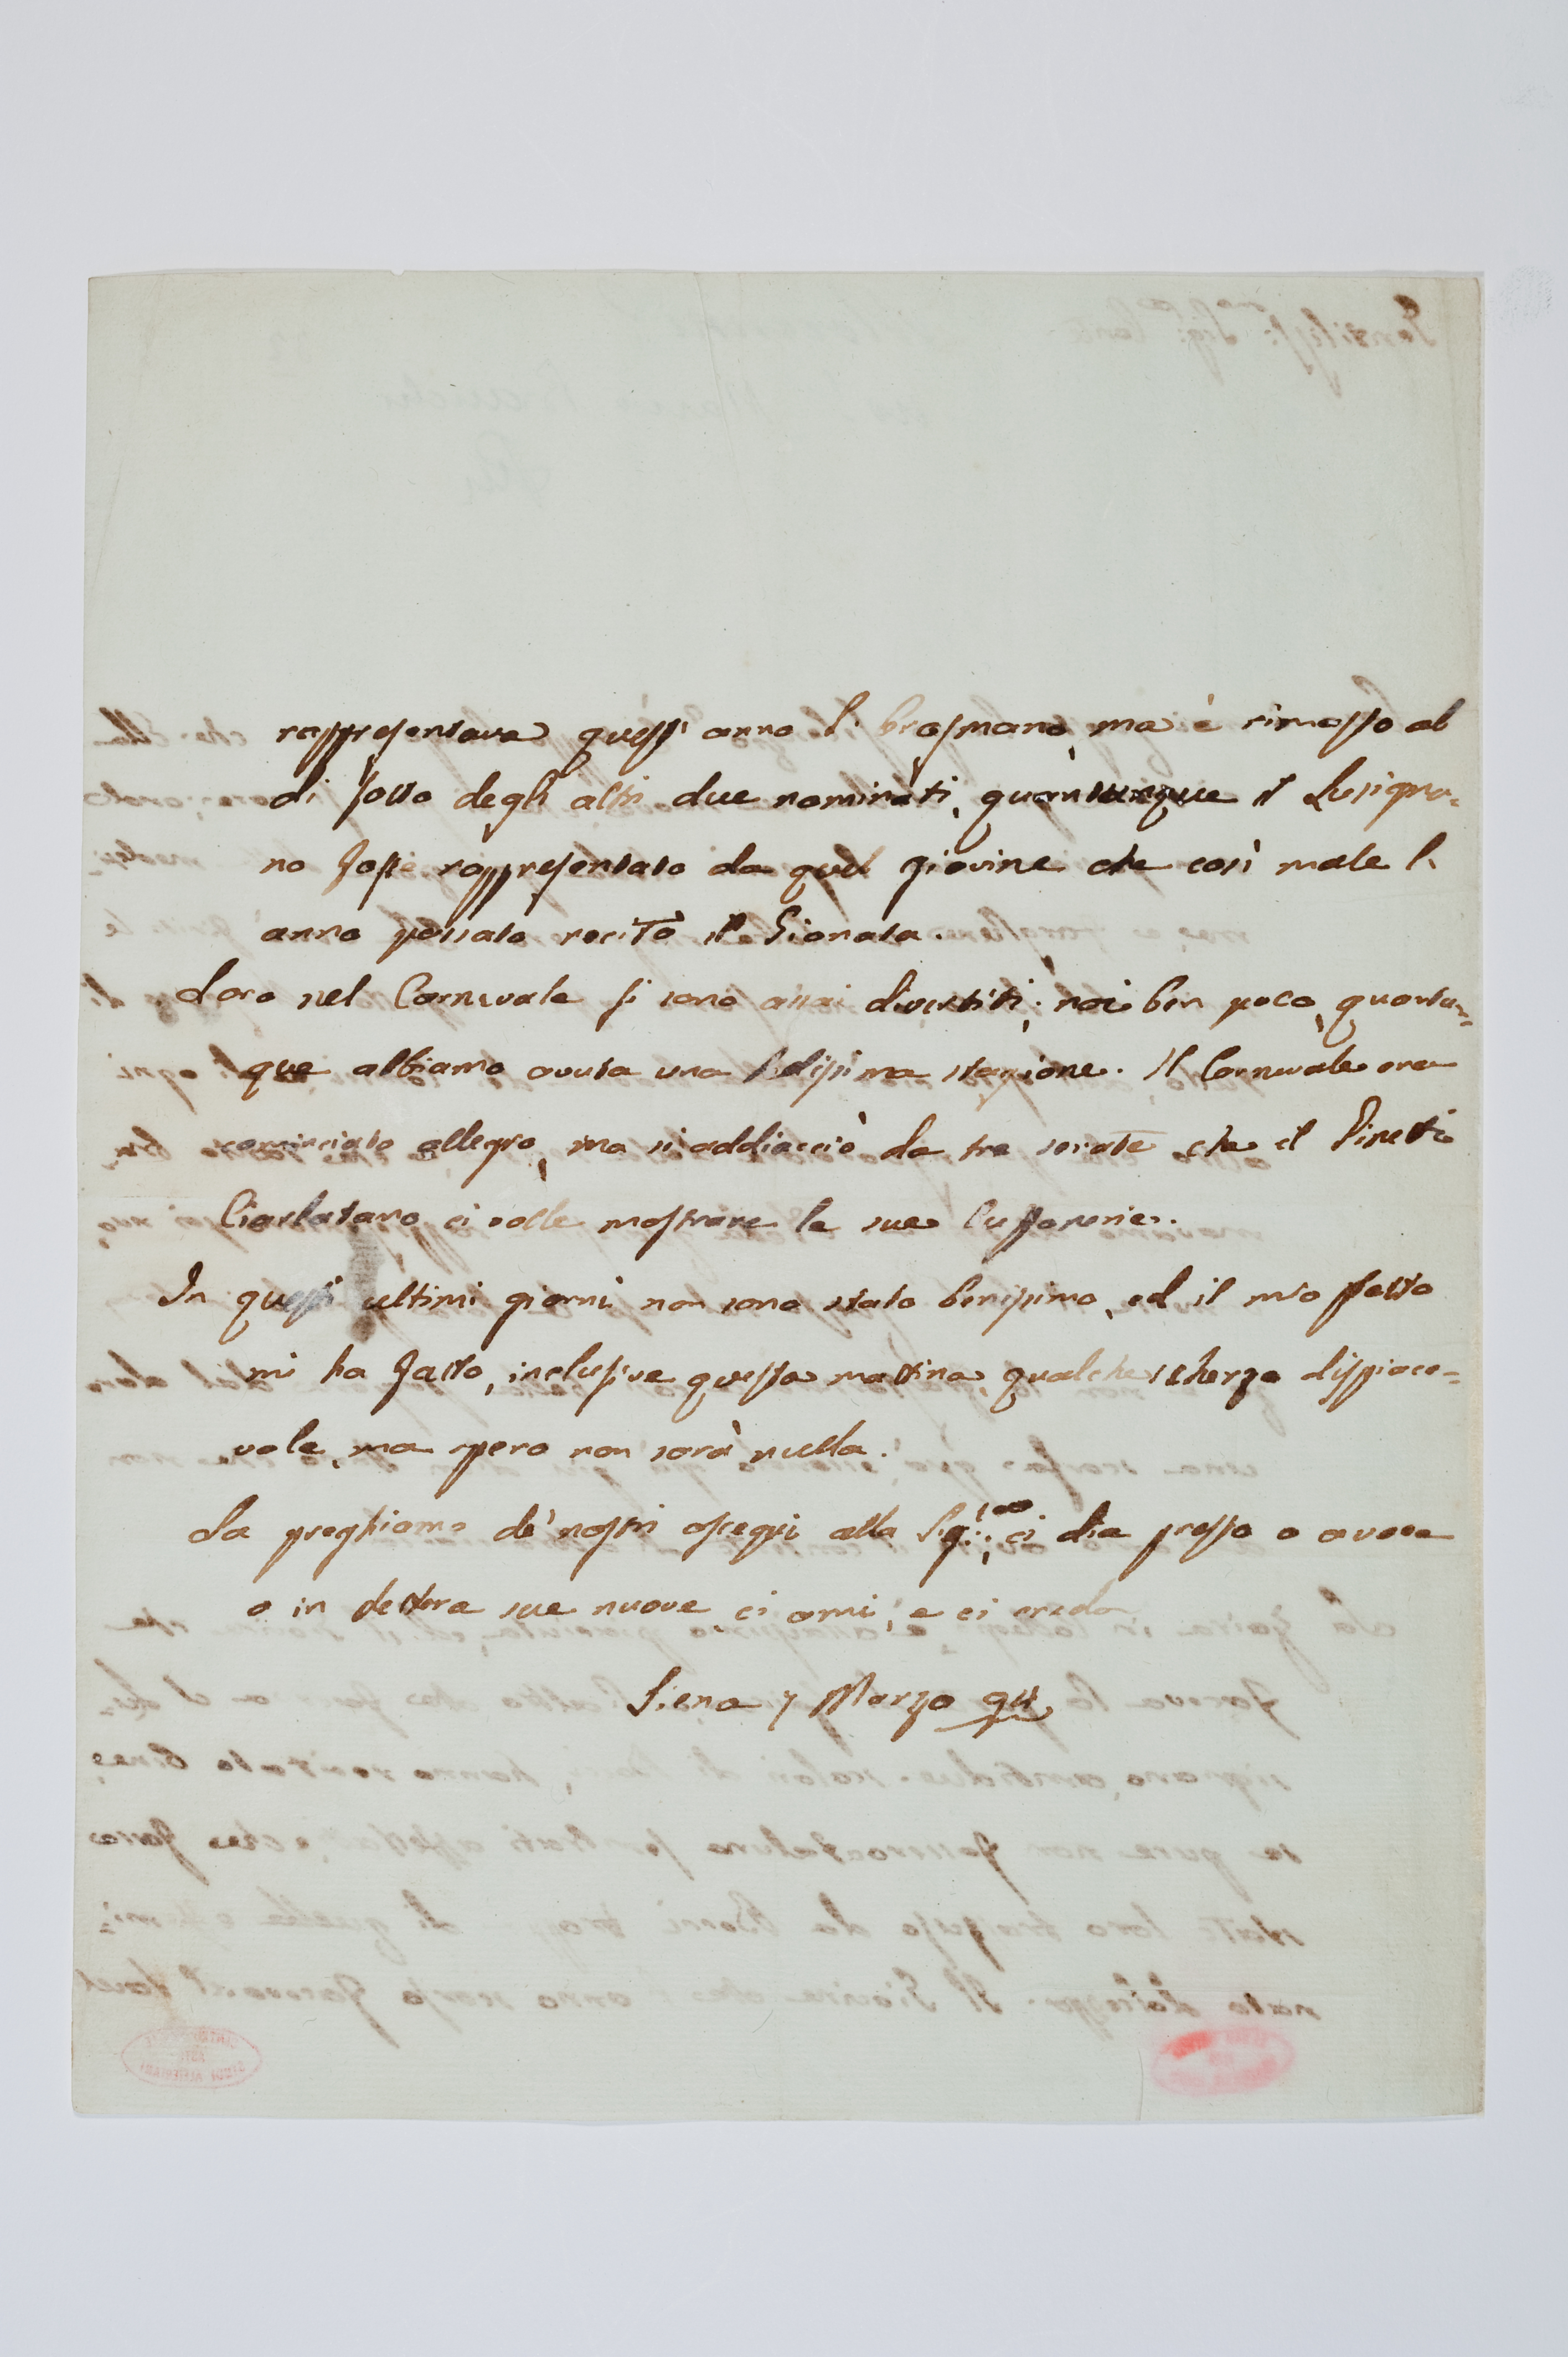 rappresentava quest' anno l' Orosmano, ma è rimasto al
di sotto degli altri due nominati, quantunque il Lusigna=
no fosse rappresentato da quel giovine che così male l'
anno passato recitò il Gionata.
Loro nel Carnevale si sono assai divertiti; noi ben poco, quantun=
que abbiamo avuta una bellissima stagione. Il Carnevale era
cominciato allegro, ma si addiacciò da tre serate che il Pinetti
Ciarlatano ci volle mostrare le sue buffonerie.
In questi ultimi giorni non sono stato benissimo, ed il mio petto
mi ha fatto, inclusive questa mattina, qualche scherzo dispiace=
vole, ma spero non sarà nulla.
La preghiamo de' nostri ossequi alla Sig.; ci dia presto a voce
o in lettera sue nuove, ci ami, e ci creda
Siena 7 Marzo 94